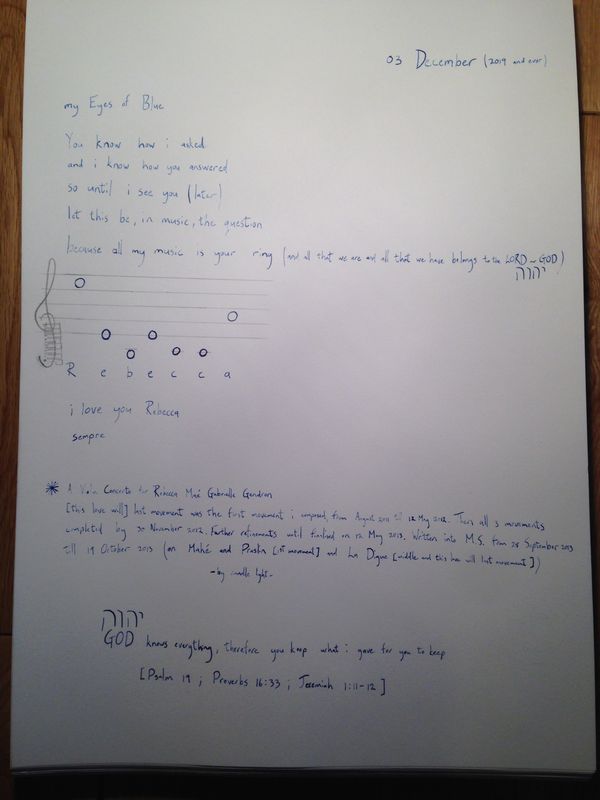 03 December (2019 and ever)
my Eyes of Blue
You know how i asked
and i know how you answered
so until i see you (later)
let this be, in music, the question
because all my music is your ring (and all that we are and all that we have belongs to the LORD ~ GOD)
יהוה
R e b e c c a
i love you Rebecca
sempre
* A Viola Concerto for Rebecca Maé Gabrielle Gendron
[this love will] last movement was the first movement i composed, from August 2011 til 12 May 2012. Then all 3 movements
completed by 30 November 2012. Further refinements until finalised on 12 May 2013. Written into M.S. from 28 September 2013
till 19 October 2013 (on Mahé and Praslin [1st movement] and La Digue [middle and this love will last movement])
-by candle light-
יהוה
GOD knows everything, therefore you keep what i gave for you to keep
[Psalm 19 ; Proverbs 16:33 ; Jeremiah 1:11-12]